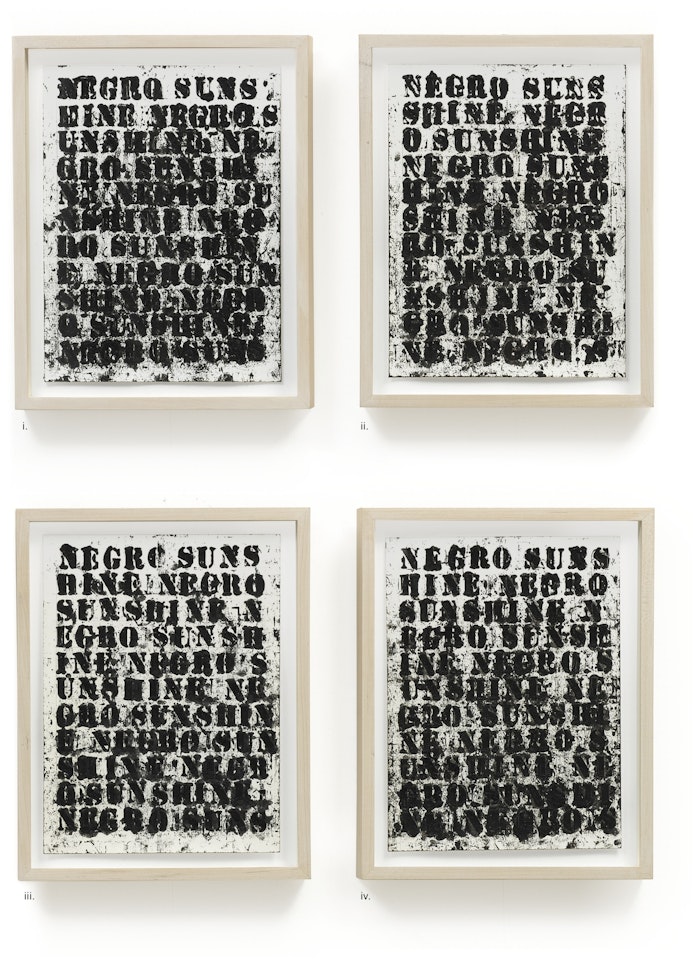 NEGRO SUNS
HINE NEGRO S
UNSHINE NE
GRO SUNSHI
NE NEGRO SU
NSHINE NEG
RO SUNSHIN
E NEGRO SUN
SHINE NEGR
O SUNSHINE
NEGRO SUNS
i.
NEGRO SUNS
SHINE NEGR
O SUNSHINE
NEGRO SUNS
HINE NEGRO
SHINE NEG
RO SUNSHIN
E NEGRO SU
NSHINE NE
GRO SUNSHI
NE NEGRO
ii.
NEGRO SUNS
HINE NEGRO
SUNSHINE N
EGRO SUNSH
INE NEGRO S
UNSHINE NE
GRO SUNSHIN
E NEGRO SUN
SHINE NEGR
O SUNSHINE
NEGRO SUNS
iii.
NEGRO SUNS
HINE NEGRO
SUNSHINE N
EGRO SUNSH
INE NEGRO S
UNSHINE NE
GRO SUNSHI
NE NEGRO S
UNSHINE NE
GRO SUNSHI
NE NEGRO S
iv.